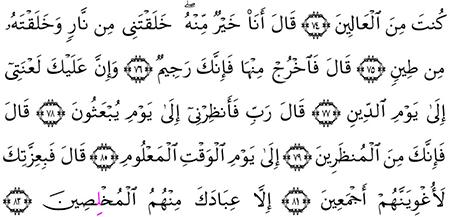 كُنتَ مِنَ ٱلْعَالِينَ ﴿٧٤﴾ قَالَ أَنَا۠ خَيْرٌ مِّنْهُ ۖ خَلَقْتَنِى مِن نَّارٍ وَخَلَقْتَهُۥ
مِن طِينٍ ﴿٧٥﴾ قَالَ فَٱخْرُجْ مِنْهَا فَإِنَّكَ رَجِيمٌ ﴿٧٦﴾ وَإِنَّ عَلَيْكَ لَعْنَتِىٓ
إِلَىٰ يَوْمِ ٱلدِّينِ ﴿٧٧﴾ قَالَ رَبِّ فَأَنظِرْنِىٓ إِلَىٰ يَوْمِ يُبْعَثُونَ ﴿٧٨﴾ قَالَ
فَإِنَّكَ مِنَ ٱلْمُنظَرِينَ ﴿٧٩﴾ إِلَىٰ يَوْمِ ٱلْوَقْتِ ٱلْمَعْلُومِ ﴿٨٠﴾ قَالَ فَبِعِزَّتِكَ
لَأُغْوِيَنَّهُمْ أَجْمَعِينَ ﴿٨١﴾ إِلَّا عِبَادَكَ مِنْهُمُ ٱلْمُخْلِصِينَ ﴿٨٣﴾